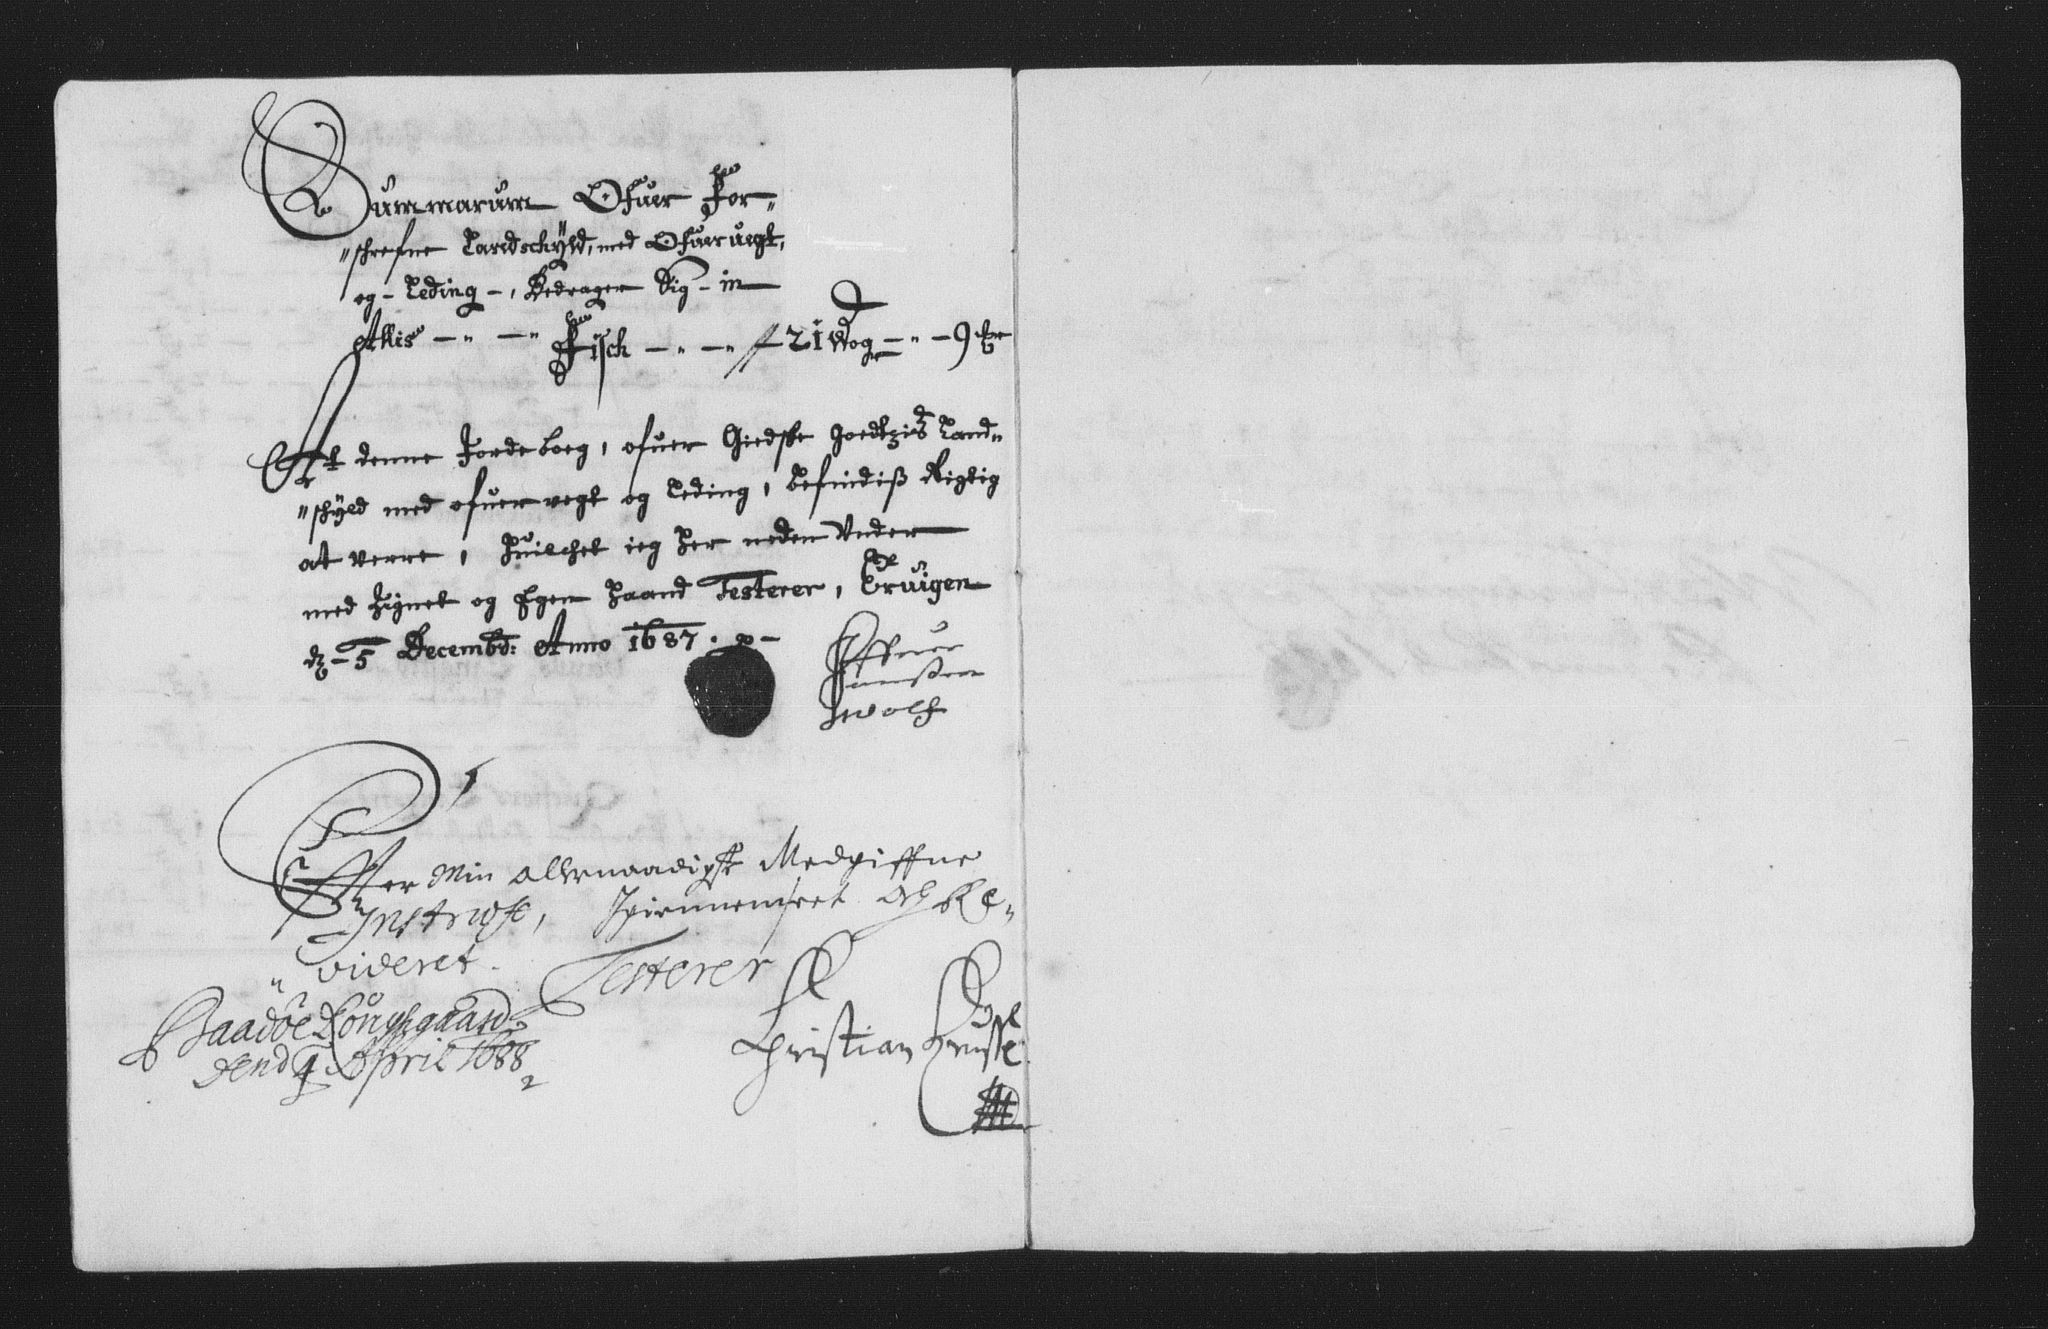 Summarum Ofuer For-
"schrefne Landschÿld, med Ofueruegt,
og - Leding -, Bedrager Sig - in
Allis - " - " Fisch - " - " 21 Wog - " - 9
Att denne Jordeboeg, ofuer Giedske Goedtzis Land"
"schÿld med ofueruegt og Leding, befindiß Rigtig
at verre, Huilchet ieg Her neden Under
med Zignet og Egen Haand Testerer, Eruigen
dz - 5 Decembr: Anno 1687
Jensen
Wolf
Effter Min allernaadigst Medgiffne
Instrux, Igiennemseet och Re-
"videret. Testerer
Baadøe Kongsgaard
dend 4 April 1688
Christian Kruse